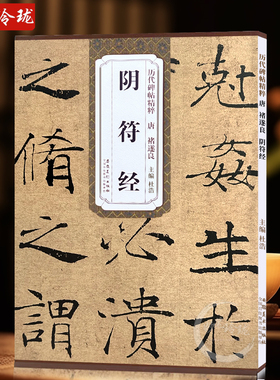 令珑
历代碑帖精粹 唐 褚遂良
阴符经
主编 杜浩
安徽美术出版社
历代碑帖精粹 唐 褚遂良 阴符经
主编 杜浩
尅姦生於
必潰
之脩之謂